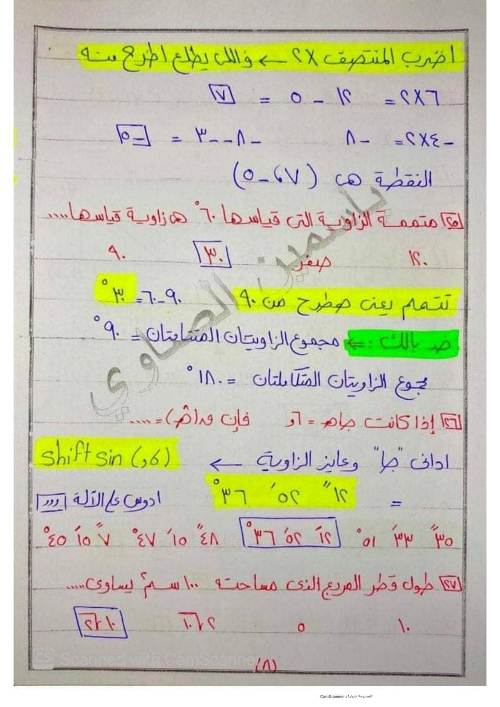 اضرب المنتصف ×٢ ← واللي يطلع اطرح منه
٦×٢= ١٢ - ٥ = ٧
-٤×٢= -٨ -٨--٣ = -٥
النقطة هى (٧، -٥)
٢٥ متممة الزاوية التى قياسها ٦٠° هى زاوية قياسها....
١٢٠ صفر ٣٠ ٩٠
تتمم يعنى هطرح من ٩٠ ٩٠-٦٠=٣٠°
خد بالك :← مجموع الزاويتان المتتامتان = ٩٠°
مجموع الزاويتان المتكاملتان = ١٨٠°
٢٦ إذا كانت جا هـ = ٦و٠ فإن ق(هـ) = ....
ادانى "جا" وعايز الزاوية ← shift sin (٦و٠)
= ١٢ً ٥٢َ ٣٦° ادوس على الآلة
٣٥ً ٣٣َ ٥١° ١٢ً ٥٢َ ٣٦° ٤٨ً ١٥َ ٤٧° ٧ً ١٥َ ٤٥°
٢٧ طول قطر المربع الذى مساحته ١٠٠ سم٢ يساوى....
١٠ ٥ ٢√٦ ٢√١٠
(٨)
ياسمين الصاوي